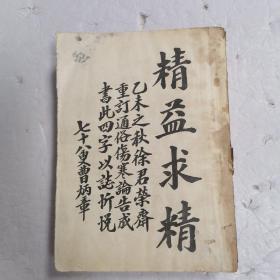 精益求精
乙未之秋徐君榮齋
重訂通俗傷寒論告成
書此四字以誌忻悦
七十八叟曹炳章